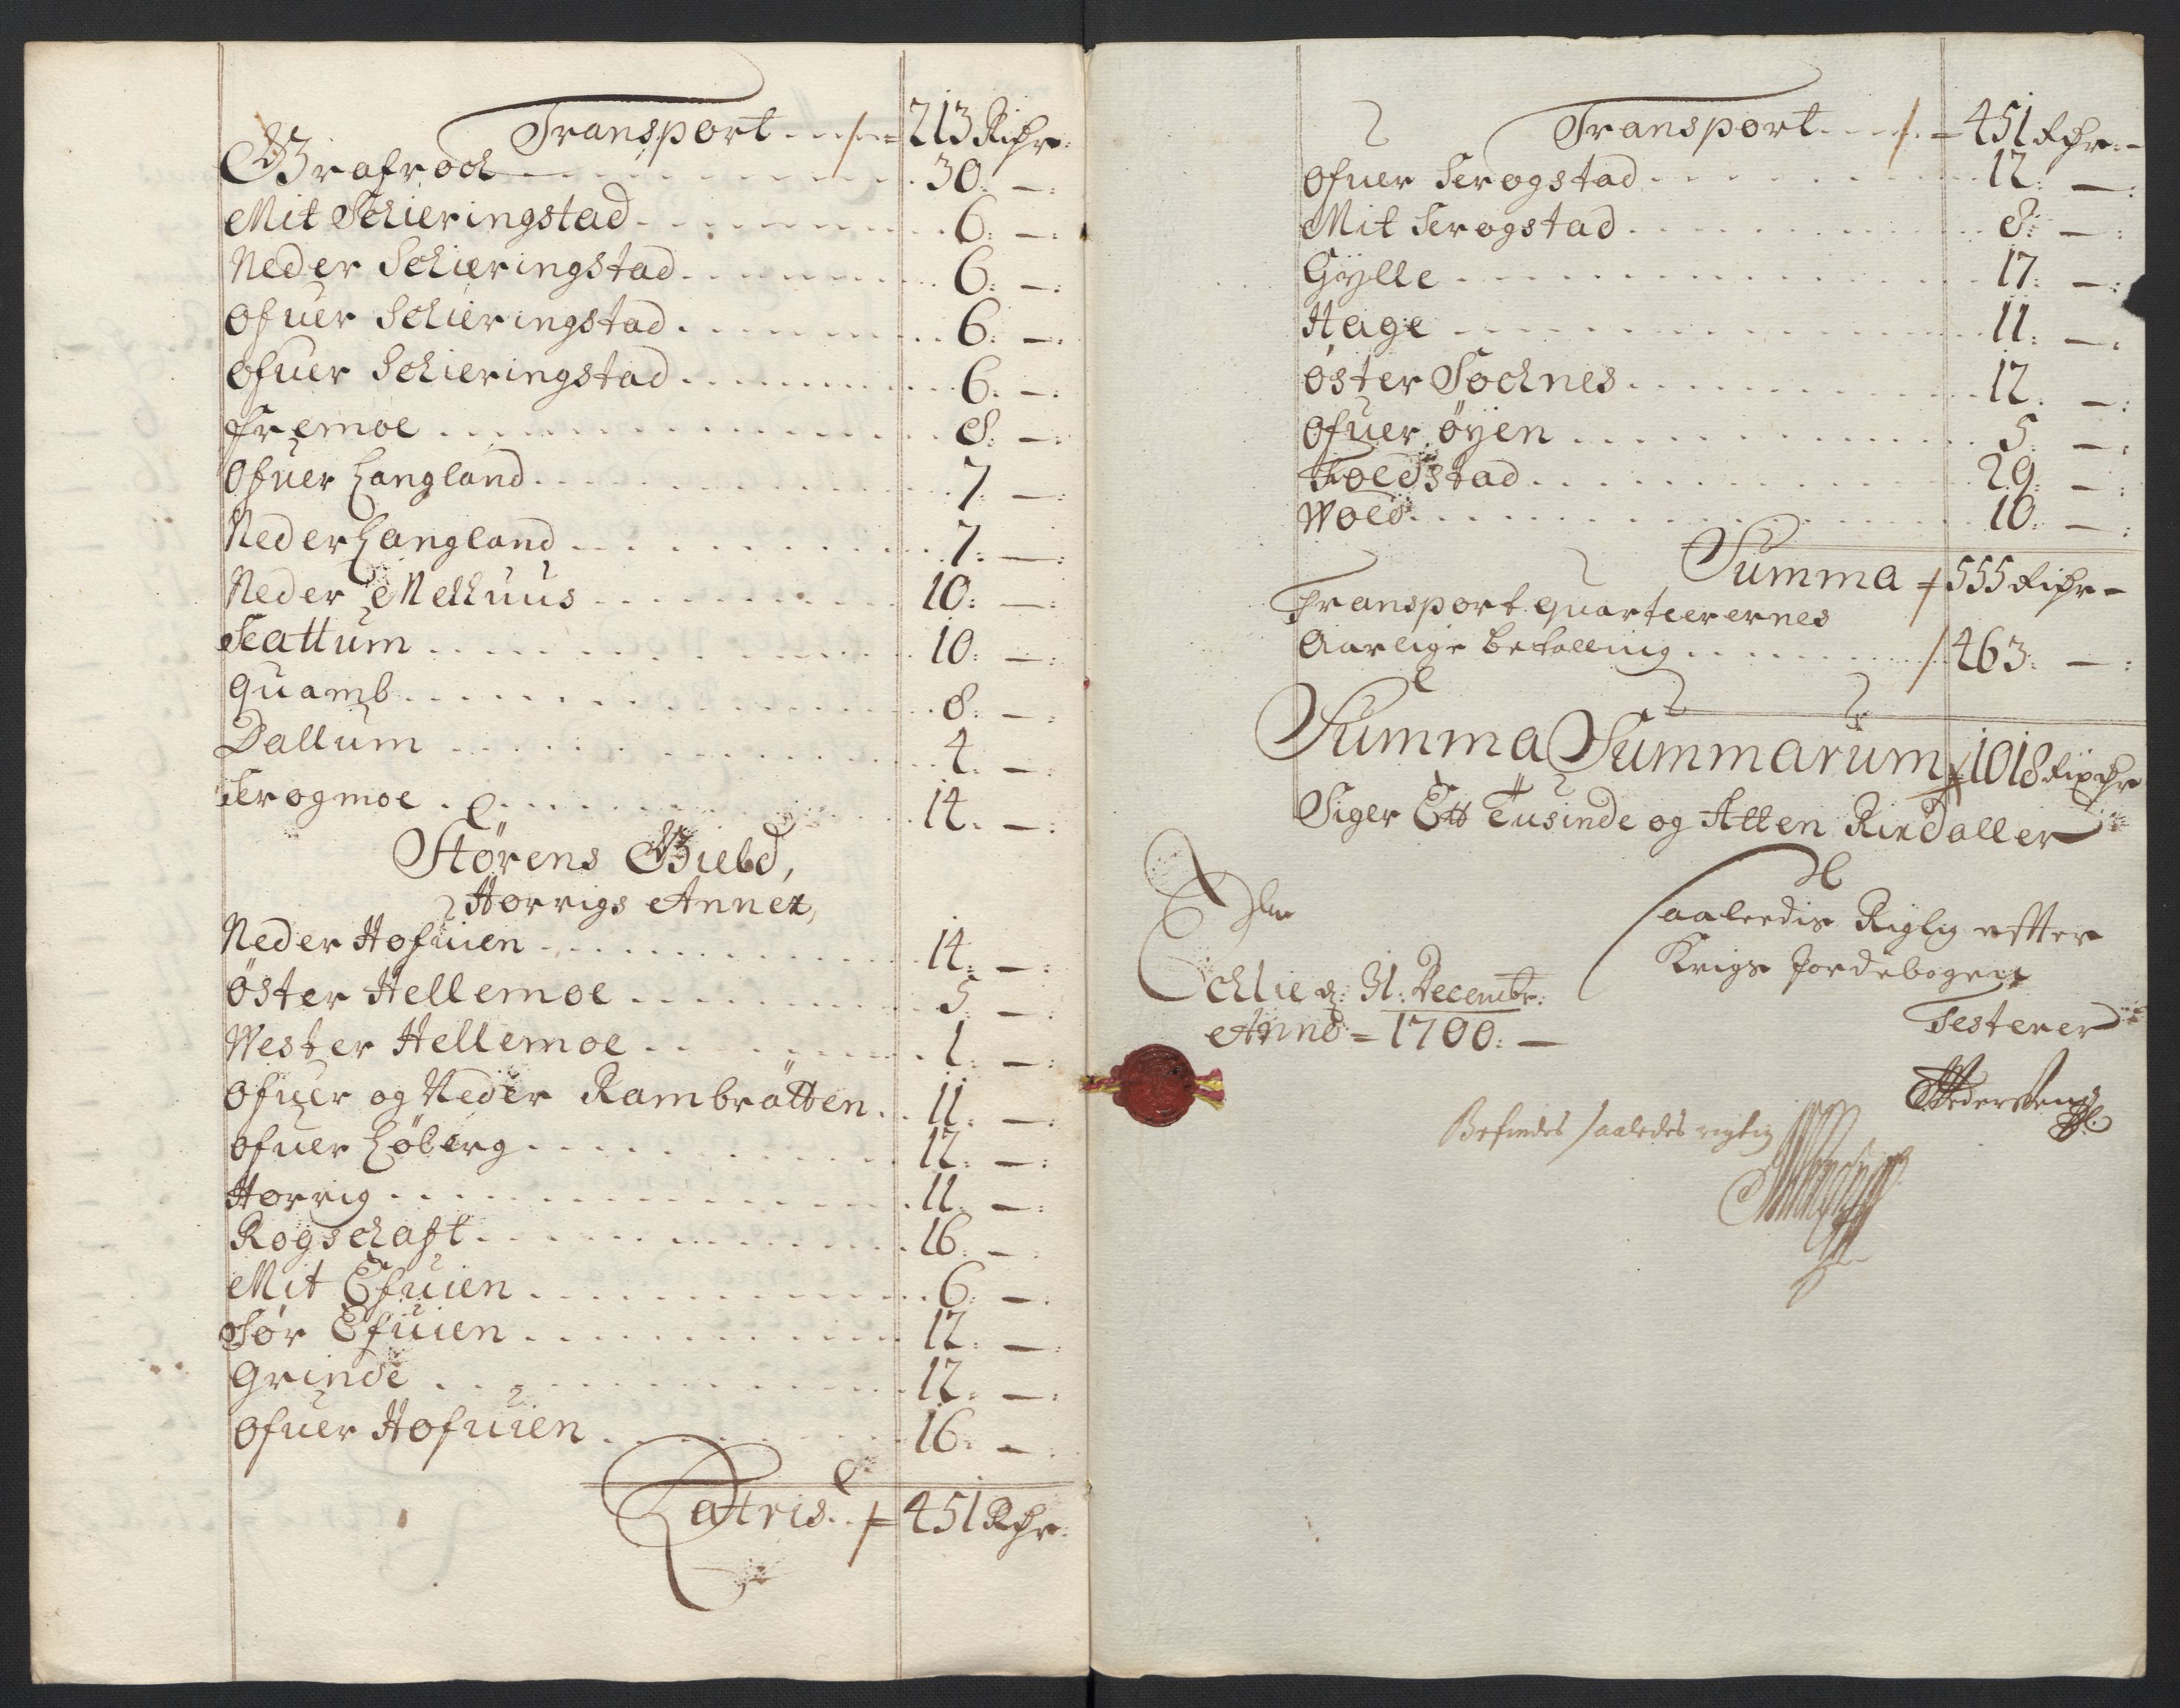 Transport - - - 213 Rixdr:
Grafrock - - - 30: —:
Mit Schieringstad - - - 6: —:
Neder Schieringstad - - - 6: —:
Ofuer Schieringstad - - - 6: —:
Ofuer Schieringstad - - - 6: —:
Fremoe - - - 8: —:
Ofuer Langland - - - 7: —:
Neder Langland - - - 7: —:
Neder Melhuus - - - 10: —:
Skattum - - - 10: —:
Quamb - - - 8: —:
Dallum - - - 4: —:
Krogmoe - - - 14: —:
Störens Gield,
Horrigs Annex,
Neder Hofuien - - - 14: —:
Öster Hellemoe - - - 5: —:
Wester Hellemoe - - - 1: —:
Ofuer og Neder Rambrötten - - 11: —:
Ofuer Löberg - - - 12: —:
Horrig - - - 11: —:
Rogschaft - - - 16: —:
Mit Efuien - - - 6: —:
Sör Efuien - - - 12: —:
Grinde - - - 12: —:
Ofuer Hofuien - - - 16: —:
Latris - - 451 Rdr:
Transport - - - 451 Rdr: —
Ofuer Krogstad - - - 12: —:
Mit Krogstad - - - 8: —:
Gylle - - - 17: —:
Hage - - - 11: —:
Öster Socknes - - - 12: —:
Ofuer öyen - - - 5: —:
Foldstad - - - 29: —:
Wold - - - 10: —:
Summa 555 Rixdr -
Transport quarteerernes
Aarlige betalling - - - 463: —:
Summa Summarum 1018 Rixdr
Siger Ett Tusinde og Atten Rixdaller
Saaledis Rigtig efter
Krigs Jordebogen
Echlie d: 31: Decembr:
Testerer
Anno = 1700: —
Befindes saaledes rigtig